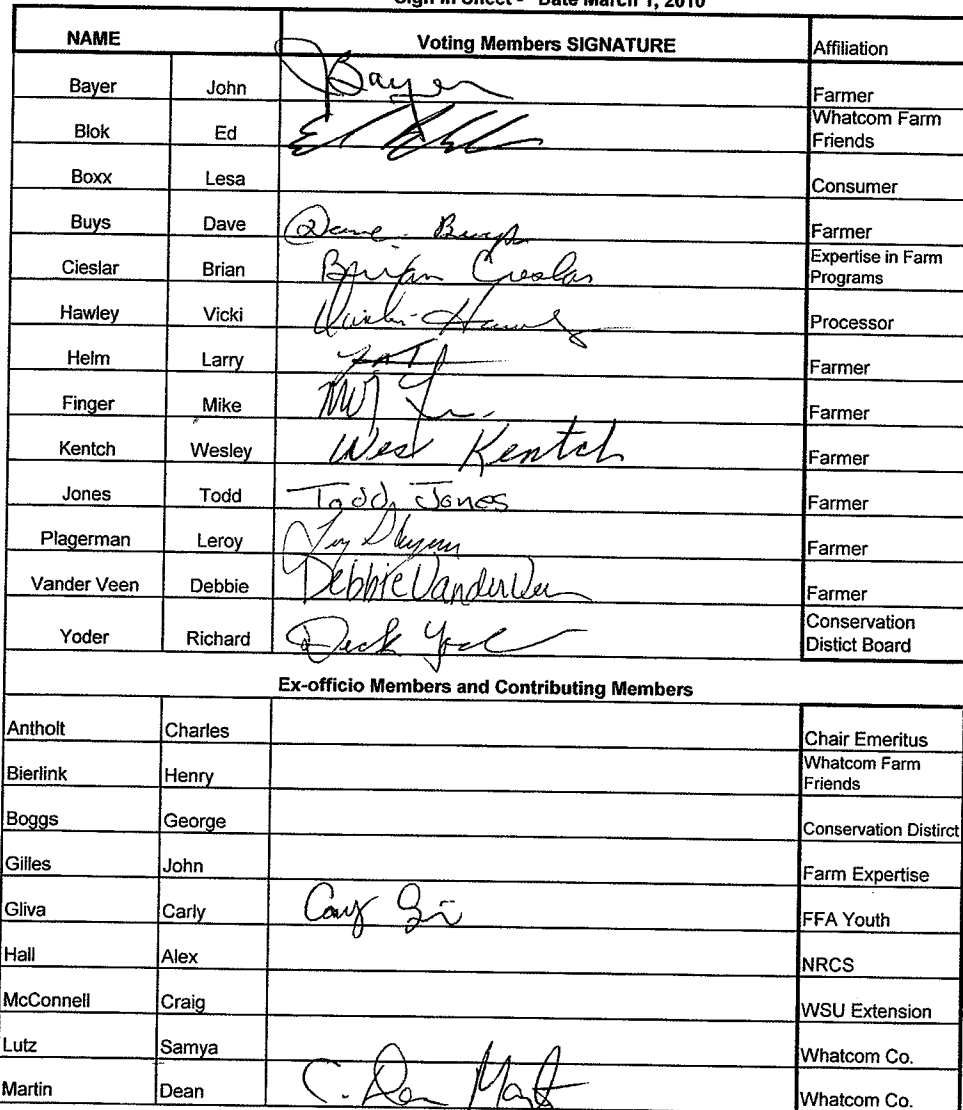 Sign In Sheet - Date March 1, 2010
NAME Voting Members SIGNATURE Affiliation
Bayer John JBayer Farmer
Blok Ed Ed Blok Whatcom Farm Friends
Boxx Lesa Consumer
Buys Dave Dave Buys Farmer
Cieslar Brian Brian Cieslar Expertise in Farm Programs
Hawley Vicki Vicki Hawley Processor
Helm Larry Farmer
Finger Mike Farmer
Kentch Wesley Wes Kentch Farmer
Jones Todd Todd Jones Farmer
Plagerman Leroy Farmer
Vander Veen Debbie Debbie VanderVeen Farmer
Yoder Richard Dick Yoder Conservation Distict Board
Ex-officio Members and Contributing Members
Antholt Charles Chair Emeritus
Bierlink Henry Whatcom Farm Friends
Boggs George Conservation Distirct
Gilles John Farm Expertise
Gliva Carly FFA Youth
Hall Alex NRCS
McConnell Craig WSU Extension
Lutz Samya Whatcom Co.
Martin Dean C. Dean Martin Whatcom Co.